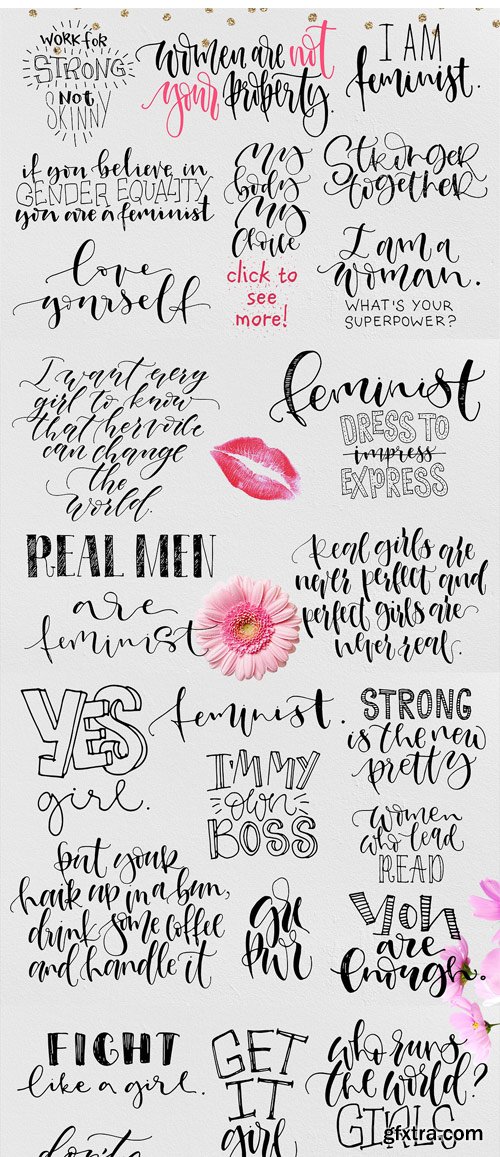 WORK FOR
STRONG
Not
SKINNY
women are not
your property.
I AM
feminist.
if you believe in
GENDER EQUALITY
you are a feminist
my
body
my
choice
Stronger
together
love
yourself
click to
see
more!
I am a
woman.
WHAT'S YOUR
SUPERPOWER?
I want every
girl to know
that her voice
can change
the
world.
feminist
DRESS TO
impress
EXPRESS
REAL MEN
are
feminist
Real girls are
never perfect and
perfect girls are
never real.
YES
girl.
feminist.
I'M MY
own
BOSS
STRONG
is the new
pretty
women
who lead
READ
put your
hair up in a bun,
drink some coffee
and handle it
grl
pwr
you
are
enough.
FIGHT
like a girl.
GET
IT
girl
who runs
the world?
GIRLS
don't
gfxtra.com